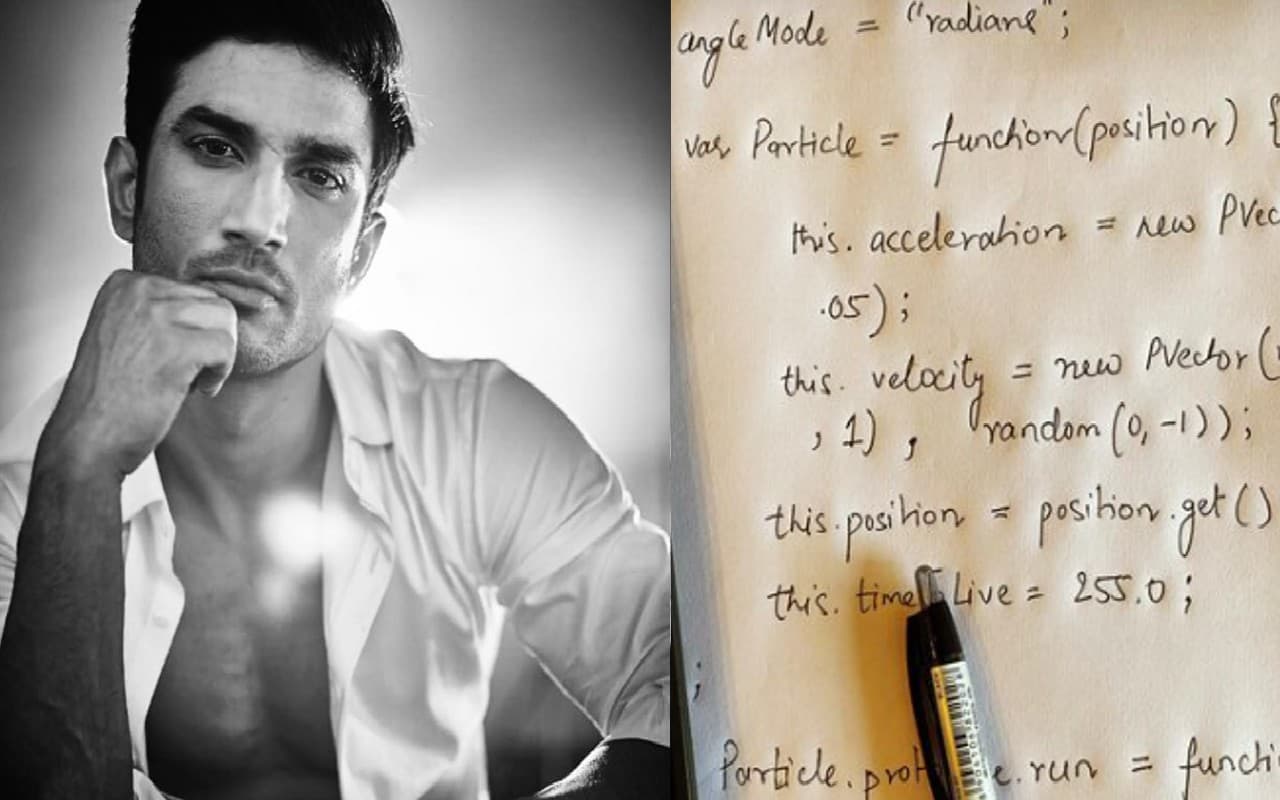 angleMode = "radians";
var Particle = function(position) {
this. acceleration = new PVec
.05);
this. velocity = new PVector(
, 1) , random(0,-1));
this.position = position.get()
this. time Live = 255.0;
;
Particle.prot e.run = functi